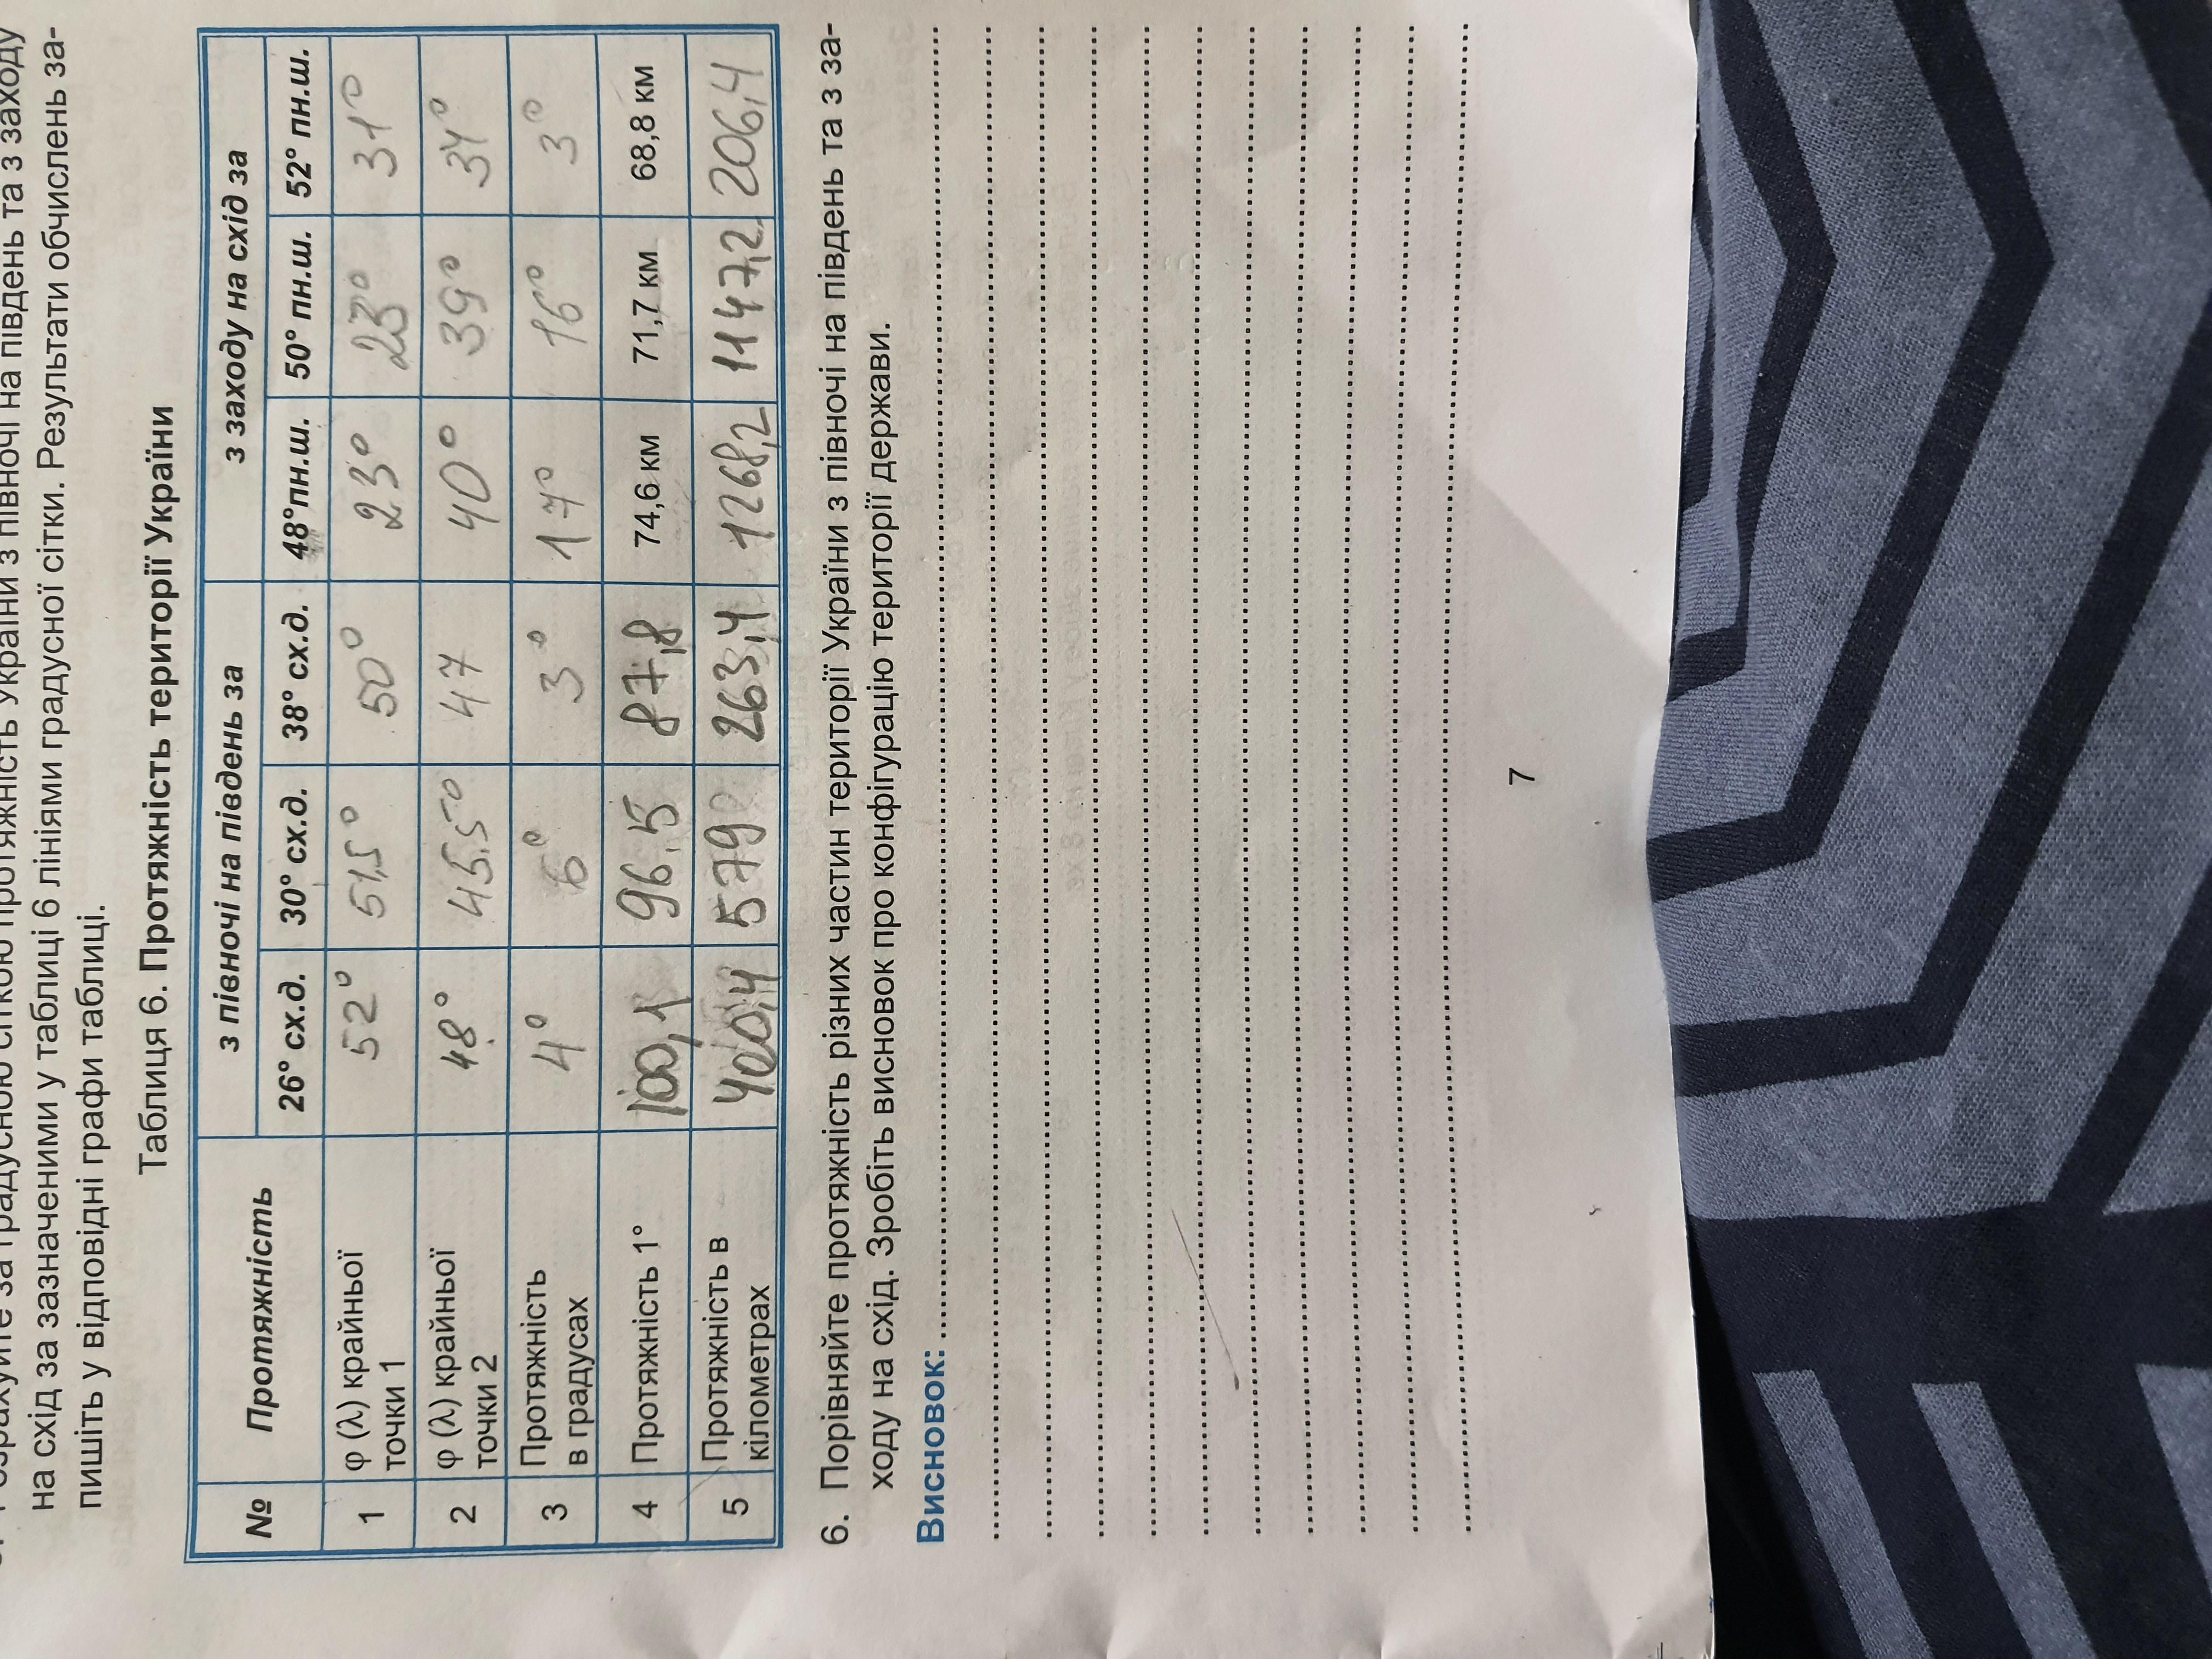 5. Розрахуйте за градусною сіткою протяжність України з півночі на південь та з заходу
на схід за зазначеними у таблиці 6 лініями градусної сітки. Результати обчислень за-
пишіть у відповідні графи таблиці.
Таблиця 6. Протяжність території України
№ Протяжність з півночі на південь за з заходу на схід за
26° сх.д. 30° сх.д. 38° сх.д. 48°пн.ш. 50° пн.ш. 52° пн.ш.
1 φ (λ) крайньої точки 1 52° 51,5° 50° 23° 23° 31°
2 φ (λ) крайньої точки 2 48° 45,5° 47 40° 39° 34°
3 Протяжність в градусах 4° 6° 3° 17° 16° 3°
4 Протяжність 1° 100,1 96,5 87,8 74,6 км 71,7 км 68,8 км
5 Протяжність в кілометрах 400,4 579 263,4 1268,2 1147,2 206,4
6. Порівняйте протяжність різних частин території України з півночі на південь та з за-
ходу на схід. Зробіть висновок про конфігурацію території держави.
Висновок:
7